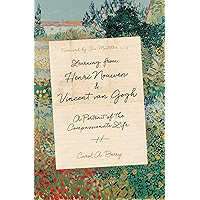 Foreword by Sue Mosteller
Learning from
Henri Nouwen
&
Vincent van Gogh
A Portrait of the
Compassionate Life
Carol A. Berry